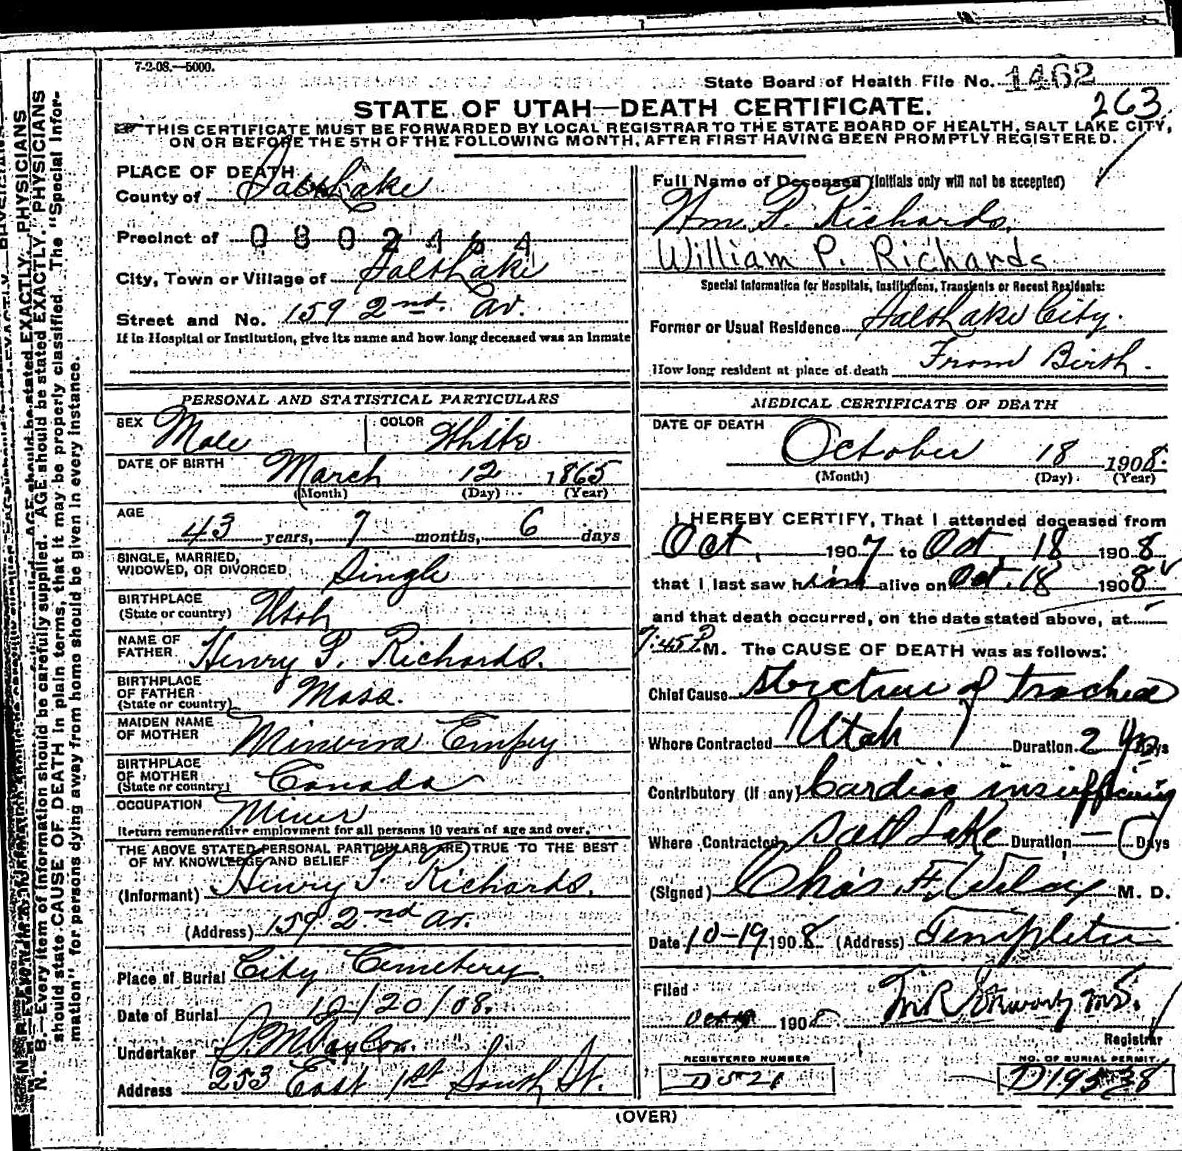 7-2-08.—5000.
State Board of Health File No. 1462
263
STATE OF UTAH—DEATH CERTIFICATE.
THIS CERTIFICATE MUST BE FORWARDED BY LOCAL REGISTRAR TO THE STATE BOARD OF HEALTH, SALT LAKE CITY,
ON OR BEFORE THE 5TH OF THE FOLLOWING MONTH, AFTER FIRST HAVING BEEN PROMPTLY REGISTERED.
PLACE OF DEATH
County of Salt Lake
Precinct of 0802464
City, Town or Village of Salt Lake
Street and No. 159 2nd. Av.
If in Hospital or Institution, give its name and how long deceased was an Inmate
PERSONAL AND STATISTICAL PARTICULARS
SEX Male COLOR White
DATE OF BIRTH March 12 1865
(Month) (Day) (Year)
AGE 43 years, 7 months, 6 days
SINGLE, MARRIED,
WIDOWED, OR DIVORCED Single
BIRTHPLACE
(State or country) Utah
NAME OF
FATHER Henry P. Richards.
BIRTHPLACE
OF FATHER
(State or country) Mass.
MAIDEN NAME
OF MOTHER Minerva Empey
BIRTHPLACE
OF MOTHER
(State or country) Canada
OCCUPATION Miner
Return remunerative employment for all persons 10 years of age and over.
THE ABOVE STATED PERSONAL PARTICULARS ARE TRUE TO THE BEST
OF MY KNOWLEDGE AND BELIEF
(Informant) Henry P. Richards.
(Address) 159 2nd Av.
Place of Burial City Cemetery.
Date of Burial 10/20/08.
Undertaker
Address 253 East 1st South St.
Full Name of Deceased (Initials only will not be accepted)
Wm. P. Richards.
William P. Richards
Special Information for Hospitals, Institutions, Transients or Recent Residents:
Former or Usual Residence Salt Lake City.
How long resident at place of death From Birth.
MEDICAL CERTIFICATE OF DEATH
DATE OF DEATH
October 18 1908.
(Month) (Day) (Year)
I HEREBY CERTIFY, That I attended deceased from
Oct. 1907 to Oct. 18 1908
that I last saw him alive on Oct. 18 1908
and that death occurred, on the date stated above, at
7:45 P.M. The CAUSE OF DEATH was as follows:
Chief Cause stricture of trachea
Where Contracted Utah Duration 2 yrs Days
Contributory (if any) Cardiac insufficiency
Where Contracted Salt Lake Duration — Days
(Signed) Chas. F. Wilcox M. D.
Date 10-19 1908 (Address) Templeton
Filed
Oct 19 1908
Registrar
REGISTERED NUMBER
D 521
NO. OF BURIAL PERMIT
D19538
(OVER)
N. B. Every item of information should be carefully supplied. AGE should be stated EXACTLY. PHYSICIANS
should state CAUSE OF DEATH in plain terms, that it may be properly classified. The "Special Infor-
mation" for persons dying away from home should be given in every instance.